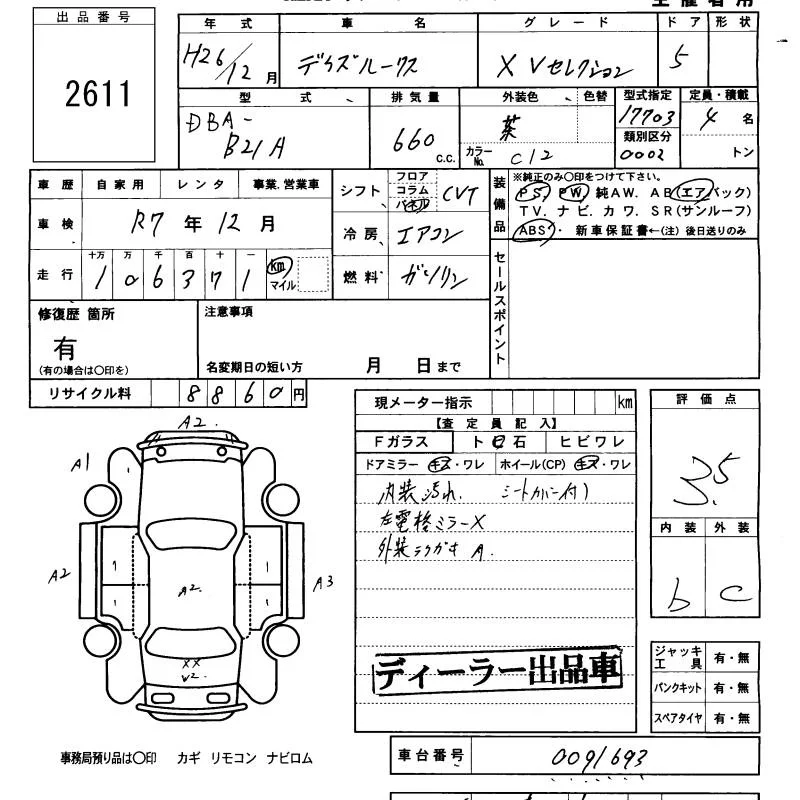 出品番号
2611
年式 車名 グレード ドア 形状
H26/12月 デイズルークス X Vセレクション 5
型式 排気量 外装色 色替 型式指定 定員・積載
DBA-B21A 660 c.c. 茶 17703 4名
カラーNo. C12 類別区分 0002 トン
車歴 自家用 レンタ 事業.営業車
シフト フロア コラム パネル CVT
装備品 ※純正のみ○印をつけて下さい。
PS. PW. 純AW. AB(エアバック)
TV. ナビ. カワ. SR(サンルーフ)
ABS・ 新車保証書←(注)後日送りのみ
車検 R7年12月
冷房 エアコン
走行 十万 万 千 百 十 一
106371 km マイル
燃料 ガソリン
セールスポイント
修復歴 箇所
有
(有の場合は○印を)
注意事項
名変期日の短い方 月 日まで
リサイクル料 8860円
現メーター指示 km
【査定員記入】
Fガラス ト石 ヒビワレ
ドアミラー キズ・ワレ ホイール(CP) キズ・ワレ
内装汚れ. シートカバー付)
左電格ミラーX
外装ラクガキ A.
ディーラー出品車
評価点
3.5
内装 外装
b c
ジャッキ工具 有・無
パンクキット 有・無
スペアタイヤ 有・無
A2.
A1
A2
A3
A2.
XX
V2.
事務局預り品は○印 カギ リモコン ナビロム
車台番号 0091693